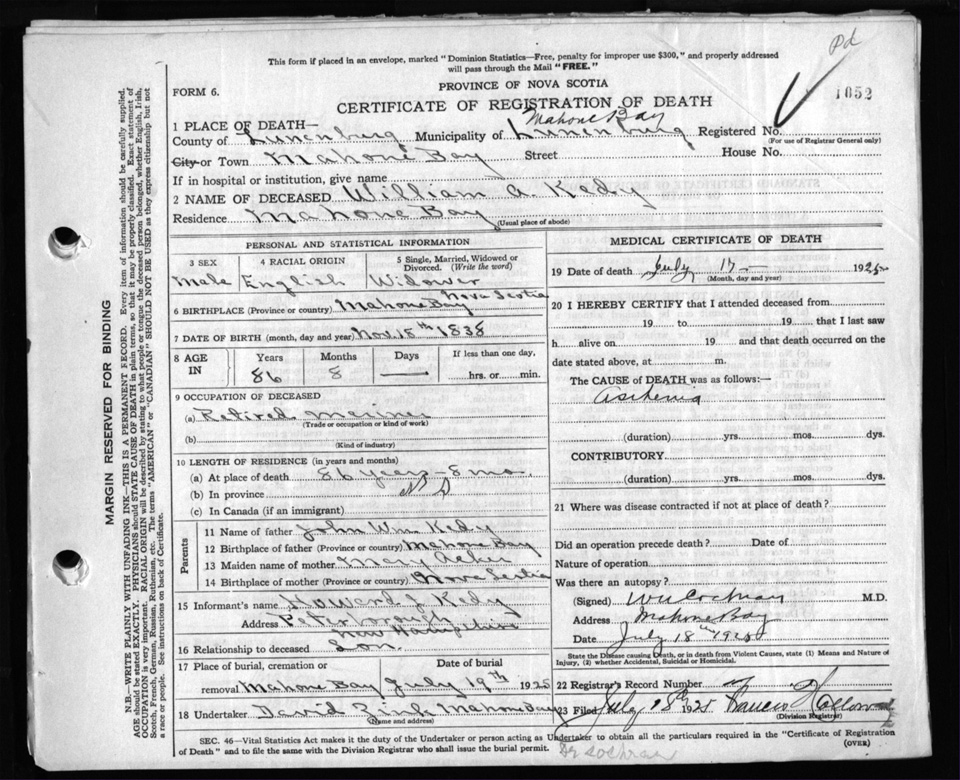 Pd
This form if placed in an envelope, marked "Dominion Statistics—Free, penalty for improper use $300," and properly addressed
will pass through the Mail "FREE."
PROVINCE OF NOVA SCOTIA
1052
FORM 6.
CERTIFICATE OF REGISTRATION OF DEATH
1 PLACE OF DEATH—
Mahone Bay
County of Lunenburg Municipality of Lunenburg Registered No.
(For use of Registrar General only)
City or Town Mahone Bay Street House No.
If in hospital or institution, give name
2 NAME OF DECEASED William A. Kedy
Residence Mahone Bay
(Usual place of abode)
PERSONAL AND STATISTICAL INFORMATION
3 SEX 4 RACIAL ORIGIN 5 Single, Married, Widowed or Divorced. (Write the word)
Male English Widower
6 BIRTHPLACE (Province or country) Mahone Bay Nova Scotia
7 DATE OF BIRTH (month, day and year) Nov. 18th 1838
8 AGE IN Years Months Days If less than one day,
86 8 — hrs. or min.
9 OCCUPATION OF DECEASED
(a) Retired mariner
(Trade or occupation or kind of work)
(b)
(Kind of industry)
10 LENGTH OF RESIDENCE (in years and months)
(a) At place of death 86 years - 8 mo
(b) In province N S
(c) In Canada (if an immigrant)
Parents
11 Name of father John Wm Kedy
12 Birthplace of father (Province or country) Mahone Bay
13 Maiden name of mother Mary
14 Birthplace of mother (Province or country) Nova Scotia
15 Informant's name Howard J. Kedy
Address Peterborough
New Hampshire
16 Relationship to deceased Son.
17 Place of burial, cremation or Date of burial
removal Mahone Bay July 19th 1925
18 Undertaker David Zink Mahone Bay
(Name and address)
MEDICAL CERTIFICATE OF DEATH
19 Date of death July 17 — 1925
(Month, day and year)
20 I HEREBY CERTIFY that I attended deceased from
19 to 19 that I last saw
h alive on 19 and that death occurred on the
date stated above, at m.
The CAUSE of DEATH was as follows:—
Asthenia
(duration) yrs. mos. dys.
CONTRIBUTORY
(duration) yrs. mos. dys.
21 Where was disease contracted if not at place of death?
Did an operation precede death? Date of
Nature of operation
Was there an autopsy?
(Signed) Cochran M.D.
Address Mahone Bay
Date July 18th 1925
State the Disease causing Death, or in death from Violent Causes, state (1) Means and Nature of
Injury, (2) whether Accidental, Suicidal or Homicidal.
22 Registrar's Record Number
23 Filed July 18th 1925 Francis
(Division Registrar)
SEC. 46—Vital Statistics Act makes it the duty of the Undertaker or person acting as Undertaker to obtain all the particulars required in the "Certificate of Registration
of Death" and to file the same with the Division Registrar who shall issue the burial permit. (OVER)
Dr Cochran
MARGIN RESERVED FOR BINDING
N.B.—WRITE PLAINLY WITH UNFADING INK—THIS IS A PERMANENT RECORD. Every item of information should be carefully supplied.
AGE should be stated EXACTLY. PHYSICIANS should STATE CAUSE OF DEATH in plain terms, so that it may be properly classified. Exact statement of
OCCUPATION is very important. RACIAL ORIGIN will be described by stating to what people or tongue the deceased person belonged, whether English, Irish,
Scotch, French, German, Russian, Ruthenian, etc. The terms "AMERICAN" or "CANADIAN" SHOULD NOT BE USED as they express citizenship but not
a race or people. See instructions on back of Certificate.